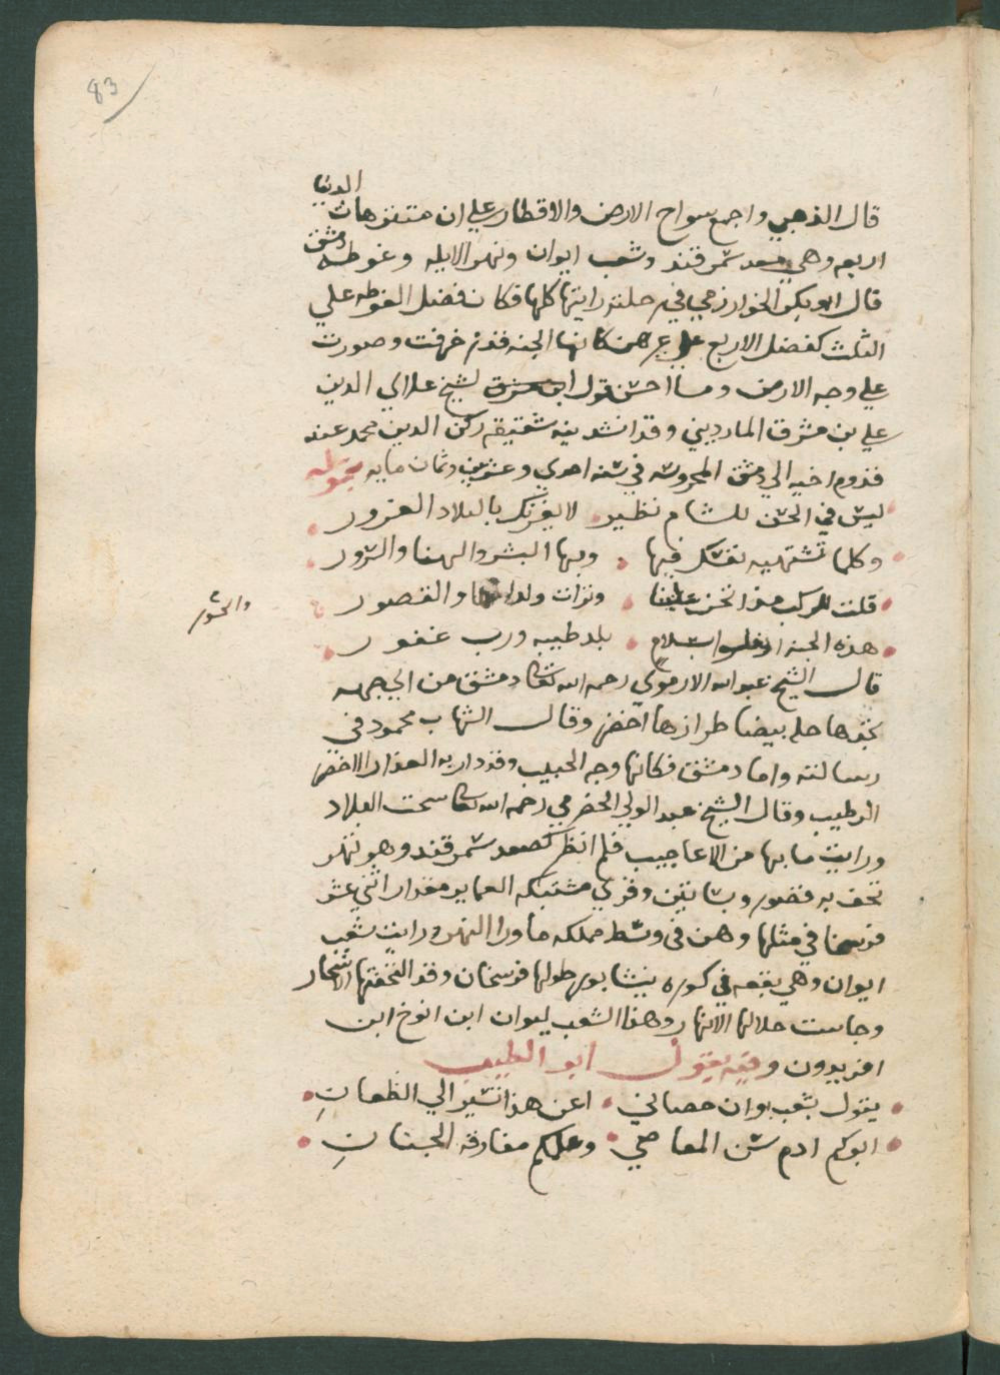 83
الدنيا
قال الذهبي واجمع سواح الارض والاقطار علي ان متنزهات
اربعه وهي صعد سمرقند وشعب ايوان ونهر الابله وغوطه دمشق
قال ابو بكر الخوارزمي في رحلته رايتها كلها فكان فضل الغوطه علي
الثلث كفضل الاربع علي غيرهن كانها الجنه قد زخرفت وصورت
علي وجه الارض وما احسن قول الشيخ علاي الدين
علي بن مشرق المارديني وقد انشدنيه شقيقه ركن الدين محمد عند
قدوم اخيه الي دمشق المحروسه في سنه احدي وعشرين وثمان مايه بقوله
ليس في الحسن للشام نظير لا يغرنك بالبلاد الغرور
وكلما تشتهيه نفسك فيها وبها البشر والهنا والسرور
قلت للركب مذ انخن علينا ونزات ولدانها والقصور
والحور
هذه الجنه ادخلوا بسلام بلد طيبه ورب غفور
قال الشيخ عبد الله الارموي رحمه الله تعالي دمشق من اي جهه
تجدها حله بيضا طرازها اخضر وقال الشهاب محمود في
رسالته واما دمشق فكانها وجه الحبيب وقد دار به العذار الاخضر
الرطيب وقال الشيخ عبد الولي الحضرمي رحمه الله تعالي سحت البلاد
ورايت ما بها من الاعاجيب فلم انظر كصعد سمرقند وهو نهر
تحف به قصور وبساتين وقري مشتبكه العماير مقدار اثني عشر
فرسخا في مثلها وهن في وسط مملكه ما ورا النهر ورايت شعب
ايوان وهي بقعه في كوره نيسابور طولها فرسخان وقد التحفتها الاشجار
وجاست خلالها الانهار وهذا الشعب لبوان ابن انوخ ابن
افريدون وفيه يقول ابو الطيب
يقول بشعب بوان حصاني اعن هذا نسير الي الظعان
ابوكم ادم سن المعاصي وعلمكم مفارقه الجنان